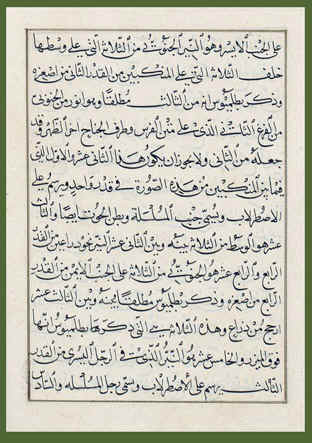 على الجنب الأيسر وهو النير الجنوبي من الثلاثة التي على وسطها
خلف الثلاثة التي على المنكبين من القدر الثاني من أصغره
وذكر بطلميوس انه من الثالث مطلقا وهو انور من الجنوبي
من الفرع الثالث الذي على متن الفرس وطرف الجناح اخر الظهر وقد
جعله من الثاني ولا يجوز ان يكون هذا الثاني عشر والاول التي
فيما بين المنكبين من هذه الصورة في قدر واحد ويرسم على
الاصطرلاب ويسمى جنب المسلسلة وبطن الحوت ايضا والثالث
عشر هو الاوسط من الثلاثة بينه وبين الثاني عشر النير نحو ذراعين القدر
الرابع والرابع عشر هو الجنوبي من الثلاثة على الجنب الايمن من القدر
الرابع من اصغره وذكر بطلميوس مطلقا بينه وبين الثالث عشر
ارجح من ذراع وهذه الثلاثة هي التي ذكرها بطلميوس انها
فوق الميزر والخامس عشر هو النير الذي في الرجل اليسرى من القدر
الثالث يرسم على الاصطرلاب ويسمى رجل المسلسلة والسادس